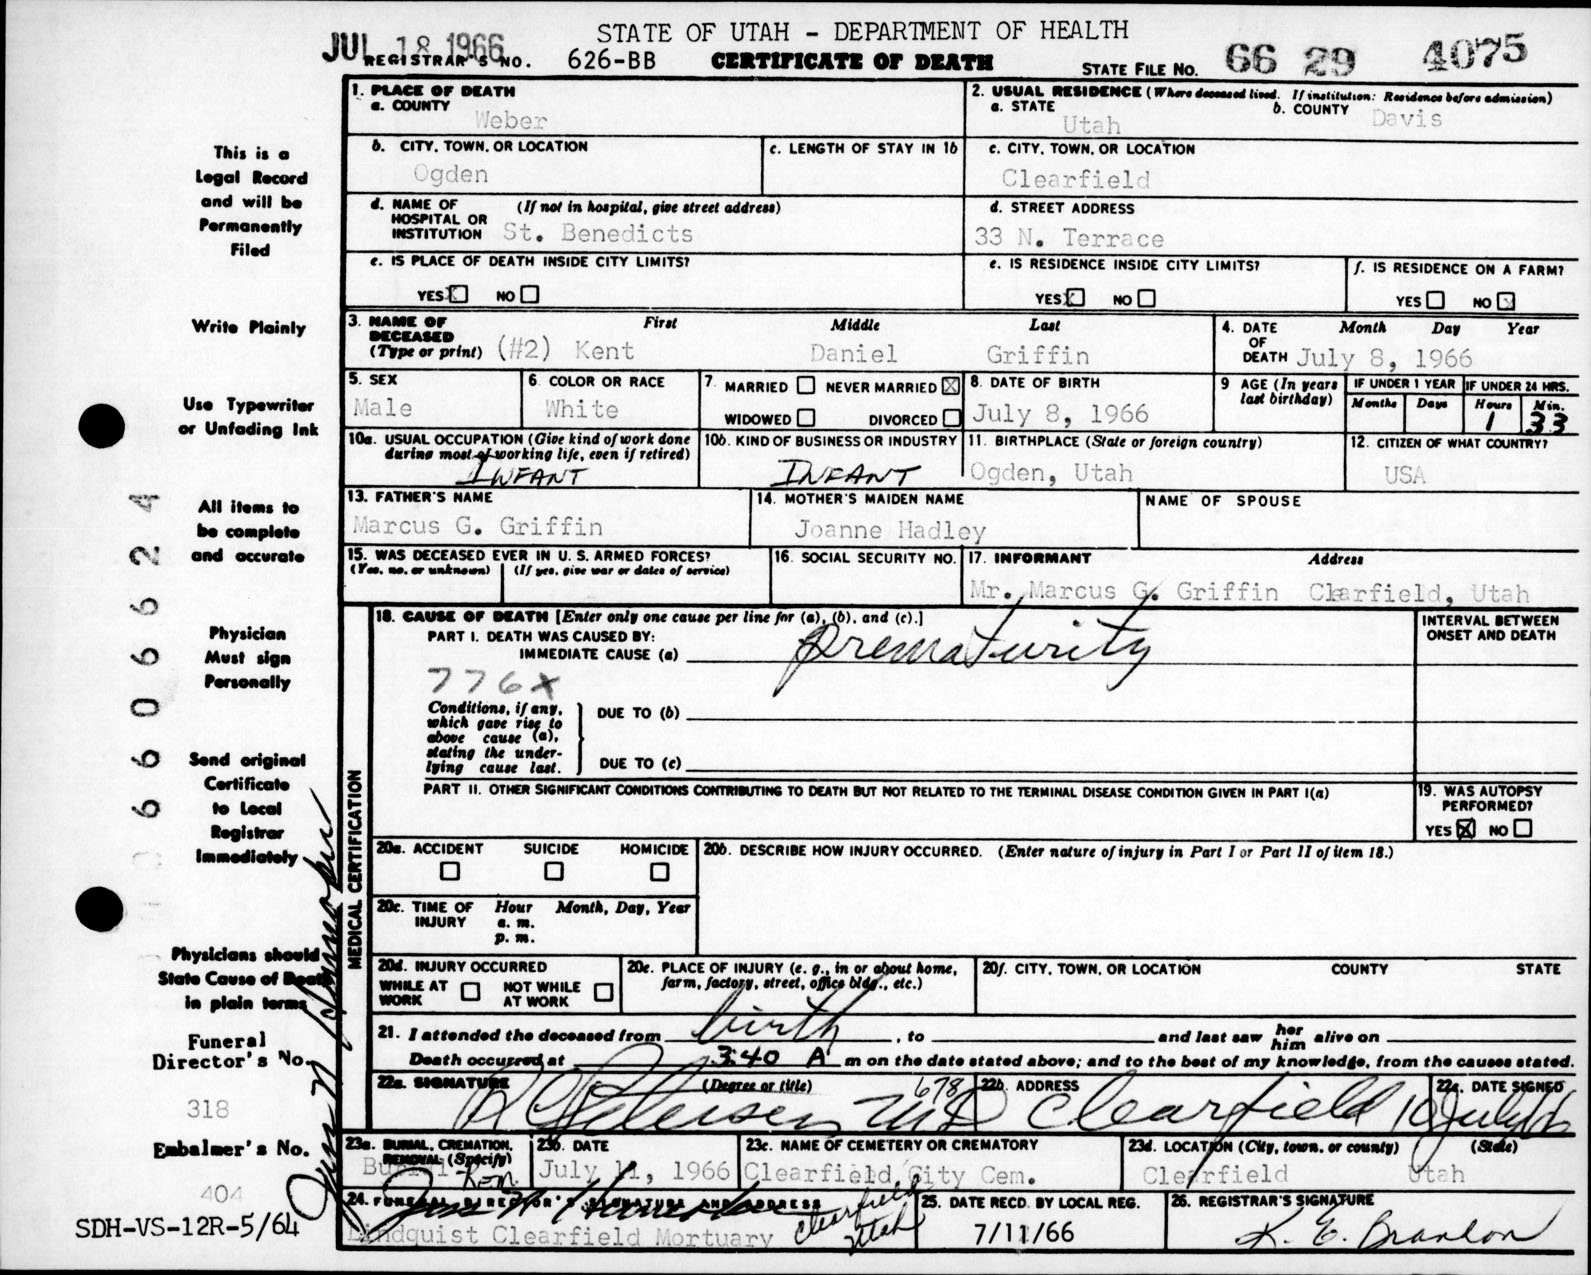 STATE OF UTAH - DEPARTMENT OF HEALTH
JUL 18 1966
REGISTRAR'S NO. 626-BB CERTIFICATE OF DEATH STATE FILE NO. 66 29 4075
This is a
Legal Record
and will be
Permanently
Filed
Write Plainly
Use Typewriter
or Unfading Ink
All items to
be complete
and accurate
Physician
Must sign
Personally
Send original
Certificate
to Local
Registrar
Immediately
Physicians should
State Cause of Death
in plain terms
Funeral
Director's No.
318
Embalmer's No.
404
SDH-VS-12R-5/64
66066624
1. PLACE OF DEATH
a. COUNTY
Weber
2. USUAL RESIDENCE (Where deceased lived. If institution: Residence before admission)
a. STATE Utah b. COUNTY Davis
b. CITY, TOWN, OR LOCATION
Ogden
c. LENGTH OF STAY IN 1b
c. CITY, TOWN, OR LOCATION
Clearfield
d. NAME OF (If not in hospital, give street address)
HOSPITAL OR
INSTITUTION St. Benedicts
d. STREET ADDRESS
33 N. Terrace
e. IS PLACE OF DEATH INSIDE CITY LIMITS?
YES X NO
e. IS RESIDENCE INSIDE CITY LIMITS?
YES X NO
f. IS RESIDENCE ON A FARM?
YES NO X
3. NAME OF First Middle Last
DECEASED
(Type or print) (#2) Kent Daniel Griffin
4. DATE Month Day Year
OF
DEATH July 8, 1966
5. SEX
Male
6. COLOR OR RACE
White
7. MARRIED NEVER MARRIED X
WIDOWED DIVORCED
8. DATE OF BIRTH
July 8, 1966
9 AGE (In years
last birthday)
IF UNDER 1 YEAR IF UNDER 24 HRS.
Months Days Hours Min.
1 33
10a. USUAL OCCUPATION (Give kind of work done
during most of working life, even if retired)
INFANT
10b. KIND OF BUSINESS OR INDUSTRY
INFANT
11. BIRTHPLACE (State or foreign country)
Ogden, Utah
12. CITIZEN OF WHAT COUNTRY?
USA
13. FATHER'S NAME
Marcus G. Griffin
14. MOTHER'S MAIDEN NAME
Joanne Hadley
NAME OF SPOUSE
15. WAS DECEASED EVER IN U. S. ARMED FORCES?
(Yes, no, or unknown) (If yes, give war or dates of service)
16. SOCIAL SECURITY NO.
17. INFORMANT Address
Mr. Marcus G. Griffin Clearfield, Utah
MEDICAL CERTIFICATION
18. CAUSE OF DEATH [Enter only one cause per line for (a), (b), and (c).]
PART I. DEATH WAS CAUSED BY:
IMMEDIATE CAUSE (a) Prematurity
776x
Conditions, if any,
which gave rise to
above cause (a),
stating the under-
lying cause last.
DUE TO (b)
DUE TO (c)
INTERVAL BETWEEN
ONSET AND DEATH
PART II. OTHER SIGNIFICANT CONDITIONS CONTRIBUTING TO DEATH BUT NOT RELATED TO THE TERMINAL DISEASE CONDITION GIVEN IN PART I(a)
19. WAS AUTOPSY
PERFORMED?
YES X NO
20a. ACCIDENT SUICIDE HOMICIDE
20b. DESCRIBE HOW INJURY OCCURRED. (Enter nature of injury in Part I or Part II of item 18.)
20c. TIME OF Hour Month, Day, Year
INJURY a. m.
p. m.
20d. INJURY OCCURRED
WHILE AT WORK NOT WHILE AT WORK
20e. PLACE OF INJURY (e. g., in or about home,
farm, factory, street, office bldg., etc.)
20f. CITY, TOWN, OR LOCATION COUNTY STATE
21. I attended the deceased from birth, to and last saw her him alive on
Death occurred at 3:40 A m on the date stated above; and to the best of my knowledge, from the causes stated.
22a. SIGNATURE (Degree or title) 678
R C Petersen MD
22b. ADDRESS
Clearfield
22c. DATE SIGNED
10 July 66
23a. BURIAL, CREMATION,
REMOVAL (Specify)
Burial-Rem
23b. DATE
July 11, 1966
23c. NAME OF CEMETERY OR CREMATORY
Clearfield City Cem.
23d. LOCATION (City, town, or county) (State)
Clearfield Utah
24. FUNERAL DIRECTOR'S SIGNATURE AND ADDRESS
Lindquist Clearfield Mortuary Clearfield Utah
25. DATE RECD. BY LOCAL REG.
7/11/66
26. REGISTRAR'S SIGNATURE
K. E. Brandon